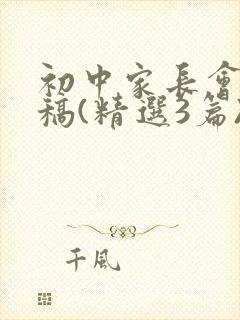 初中家長會
稿(精選3篇)
千風